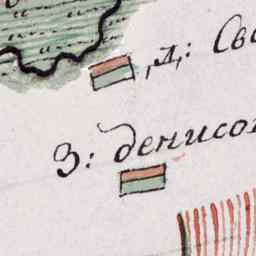 Д: Сво
З: денисов